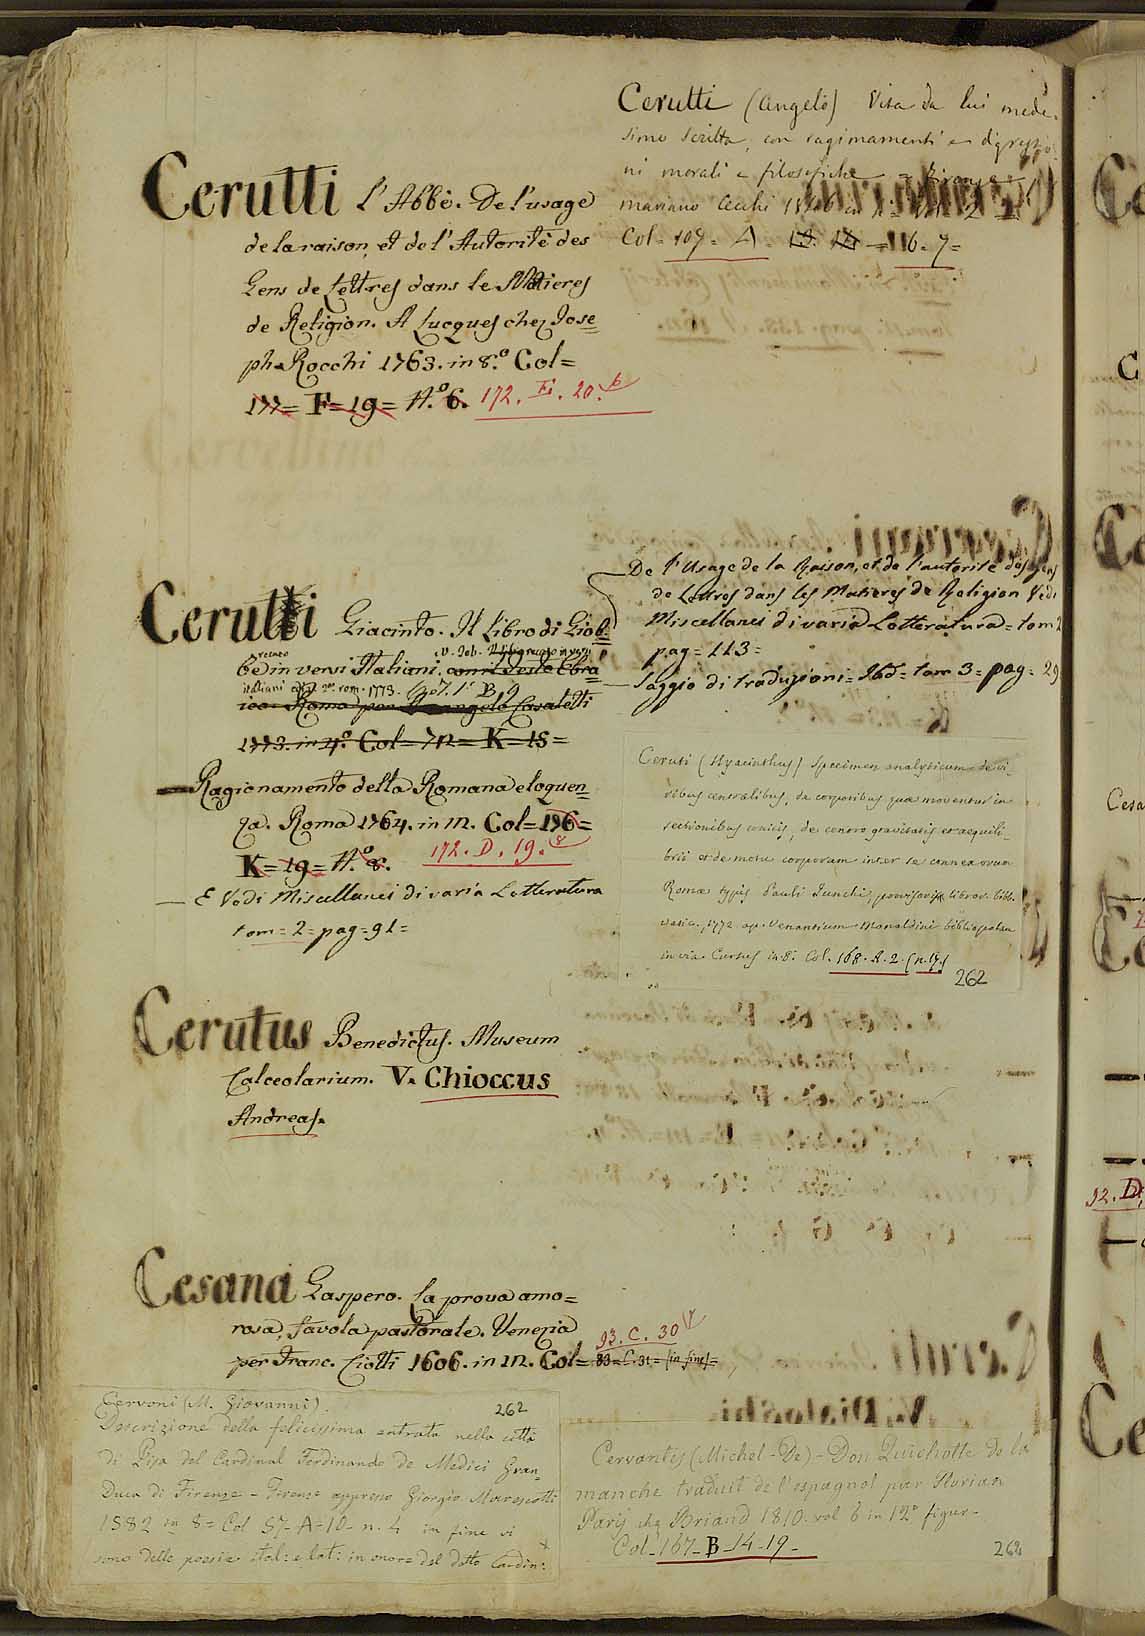 Cerutti (Angelo) Vita da lui mede-
simo scritta, con ragionamenti e digressio-
ni morali e filosofiche = Firenze =
mariano Cecchi
Col = 109 = A = 6. 7 =
Cerutti l'Abbè. De l'usage
de la raison, et de l'Autoritè des
Gens de Lettres dans les Matieres
de Religion. A Lucques chez Jose=
ph Rocchi 1763. in 8.º Col=
177= F=19= N.º 6. 172. Fi. 20. 6
Cerutti Giacinto. Il Libro di Giob=
be in versi Italiani. con il Testo Ebra
ico Roma per Casaletti
1773. in 4.º Col=72=K=15=
— Ragionamento della Romana eloquen=
za. Roma 1764. in 12. Col=176=
K=19= N.º 8. 172. D. 19. 8
— E Vedi Miscellanei di varia Letteratura
tom=2=pag=91=
De l'Usage de la Raison, et de l'autorité des gens
de Lettres dans les Matieres de Religion Vedi
Miscellanei di varia Letteratura= tom 2
pag=113=
— Saggio di traduzioni= Ibid= tom 3= pag= 29
Ceruti (Hyacinthus) Specimen analyticum de vi-
ribus centralibus, de corporibus quae moventur in
sectionibus conicis, de centro gravitatis et aequili-
brii et de motu corporum inter se connexorum
Romae typis Pauli Junchi, provisoris libror. bibl.
vatic., 1772 ap. Venantium Monaldini bibliopolam
in via Cursus in 8.º Col. 168. A. 2. (n. 17.)
262
Cerutus Benedictus. Museum
Calceolarium. V. Chioccus
Andreas.
Cesana Gaspero. La prova amo=
rosa, favola pastorale. Venezia
per Franc. Ciotti 1606. in 12. Col= 83=C.31=(in fine)=
93. C. 30
Cervoni (M. Giovanni). 262
Descrizione della felicissima entrata nella città
di Pisa del Cardinal Ferdinando de Medici Gran
Duca di Firenze - Firenze appresso Giorgio Marescotti
1582 in 8= Col 57-A=10- n. 4 in fine vi
sono delle poesie ital: e lat: in onore del detto Cardin:
Cervantes (Michel-De) - Don Quichotte de la
manche traduit de l'espagnol par Florian
Paris chez Briand 1810. vol 6 in 12º figur-
Col-167-B-14-19-
262